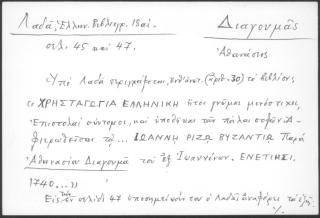 Λαδᾶ, Ἑλλην. Βιβλιογρ. 18 αἰ. Διαγουμᾶς
σελ. 45 καί 47. Ἀθανάσιος
Ὑπό Λαδᾶ περιγράφεται, (ἀριθ. 30) τό βιβλίον,
« ΧΡΗΣΤΑΓΩΓΙΑ ΕΛΛΗΝΙΚΗ ἤτοι γνῶμαι μονόστιχοι,
Ἐπιστολαί σύντομοι, καί ὑποθῆκαι τῶν πάλαι σοφῶν. Ἀ-
φιερωθεῖσαι τῷ ... ΙΩΑΝΝΗ ΡΙΖΩ ΒΥΖΑΝΤΙΩ Παρά
Ἀθανασίου Διαγουμᾶ τοῦ ἐξ Ἰωαννίνων. ΕΝΕΤΙΗΣΙ.
1740 ... »
Εἰς τήν σελίδα 47 ὑποσημείωσιν του ὁ Λαδᾶς ἀναφέρει τά ἑξῆς
./.